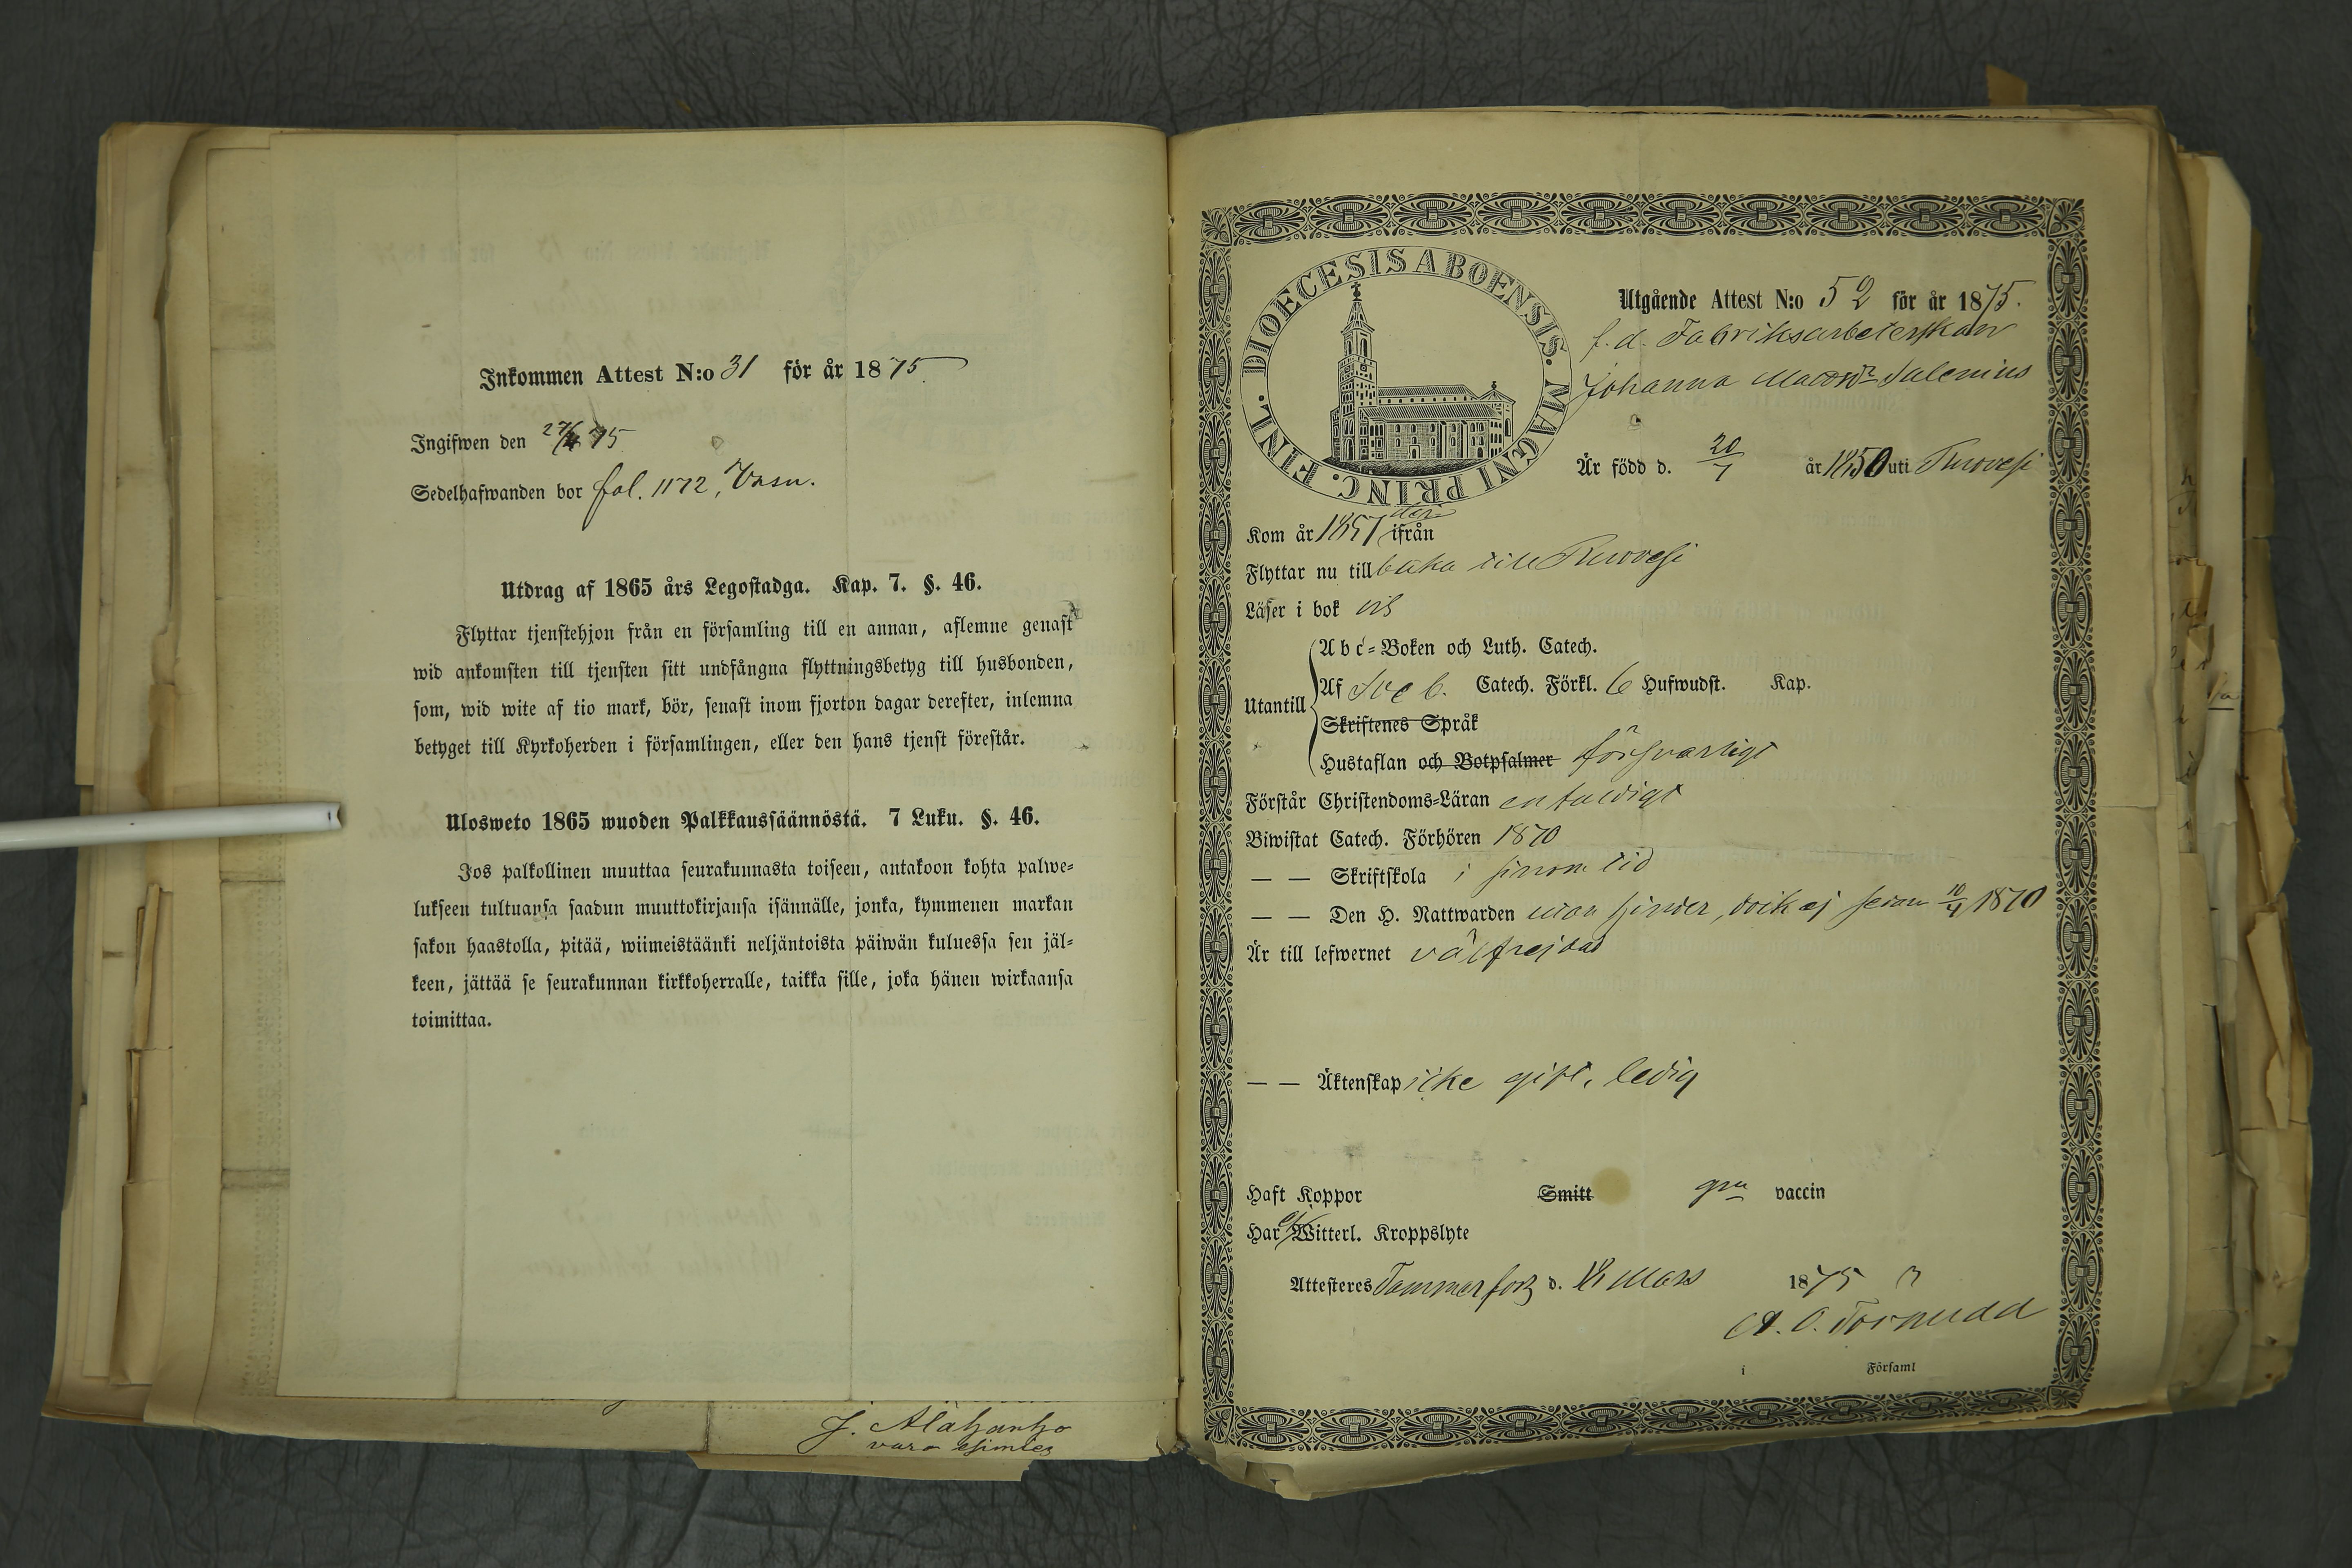 Inkommen Attest N:o 31 för år 1875.
Ingifwen den 27/4 75
Sedelhafwanden bor fol. 1172,
Utdrag af 1865 års Legostadga. Kap. 7. §. 46.
Flyttar tjenstehjon från en församling till en annan, aflemne genast
wid ankomsten till tjensten sitt undfångna flyttningsbetyg till husbonden,
som, wid wite af tio mark, bör, senast inom fjorton dagar derefter, inlemna
betyget till Kyrkoherden i församlingen, eller den hans tjenst förestår.
Ulosweto 1865 wuoden Palkkaussäännöstä. 7 Luku. §. 46.
Jos palkollinen muuttaa seurakunnasta toiseen, antakoon kohta palwe-
lukseen tultuansa saadun muuttokirjansa isännälle, jonka, kymmenen markan
sakon haastolla, pitää, wiimeistäänki neljäntoista päiwän kuluessa sen jäl-
keen, jättää se seurakunnan kirkkoherralle, taikka sille, joka hänen wirkaansa
toimittaa.
J. Alahanko
DIOECESIS ABOENSIS. MAGNI PRINC. FINL.
Utgående Attest N:o 52 för år 1875.
f.d. Fabriksarbeterskan
Johanna Salenius
Är född d. 20/7 år 1850 uti Ruovesi
Kom år 1857 der ifrån
Flyttar nu tillbaka till Ruovesi
Läser i bok
Abc-Boken och Luth. Catech.
Utantill Af Sveb. Catech. Förkl. 6 Hufwudst. Kap.
Skriftenes Språk
Hustaflan och Botpsalmer försvarligt
Förstår Christendoms-Läran enfaldigt
Biwistat Catech. Förhören 1870
— — Skriftskola i sinom tid
— — Den H. Nattwarden utan hinder, dock ej sedan 10/4 1870
Är till lefwernet välfrejdad
— — Äktenskap icke gift, ledig
Haft Koppor Smitt vaccin
Har ej Witterl. Kroppslyte
Attesteres Tammerfors d. Mars 1875
A. O. Törnudd
i Församl